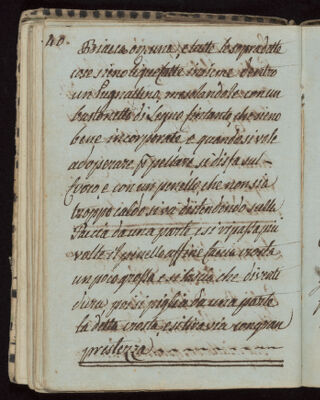 40.
Biacca oncia una, e tutte le sopradette
cose sieno liquefatte insieme dentro
un Pignattino, mescolandole con un
bastoncello di Legno fintanto che sieno
bene incorporate, e quando si vole
adoperare p pellare, si disfa sul
fuoco, e con un penello, che non sia
troppo caldo si va distendendo sulla
Faccia da una parte, e si ripassa più
volte il penello affine faccia crosta
un poco grossa, e si lascia che divente
dura, poi si piglia da una parte
la detta crosta, e si tira via con gran
prestezza